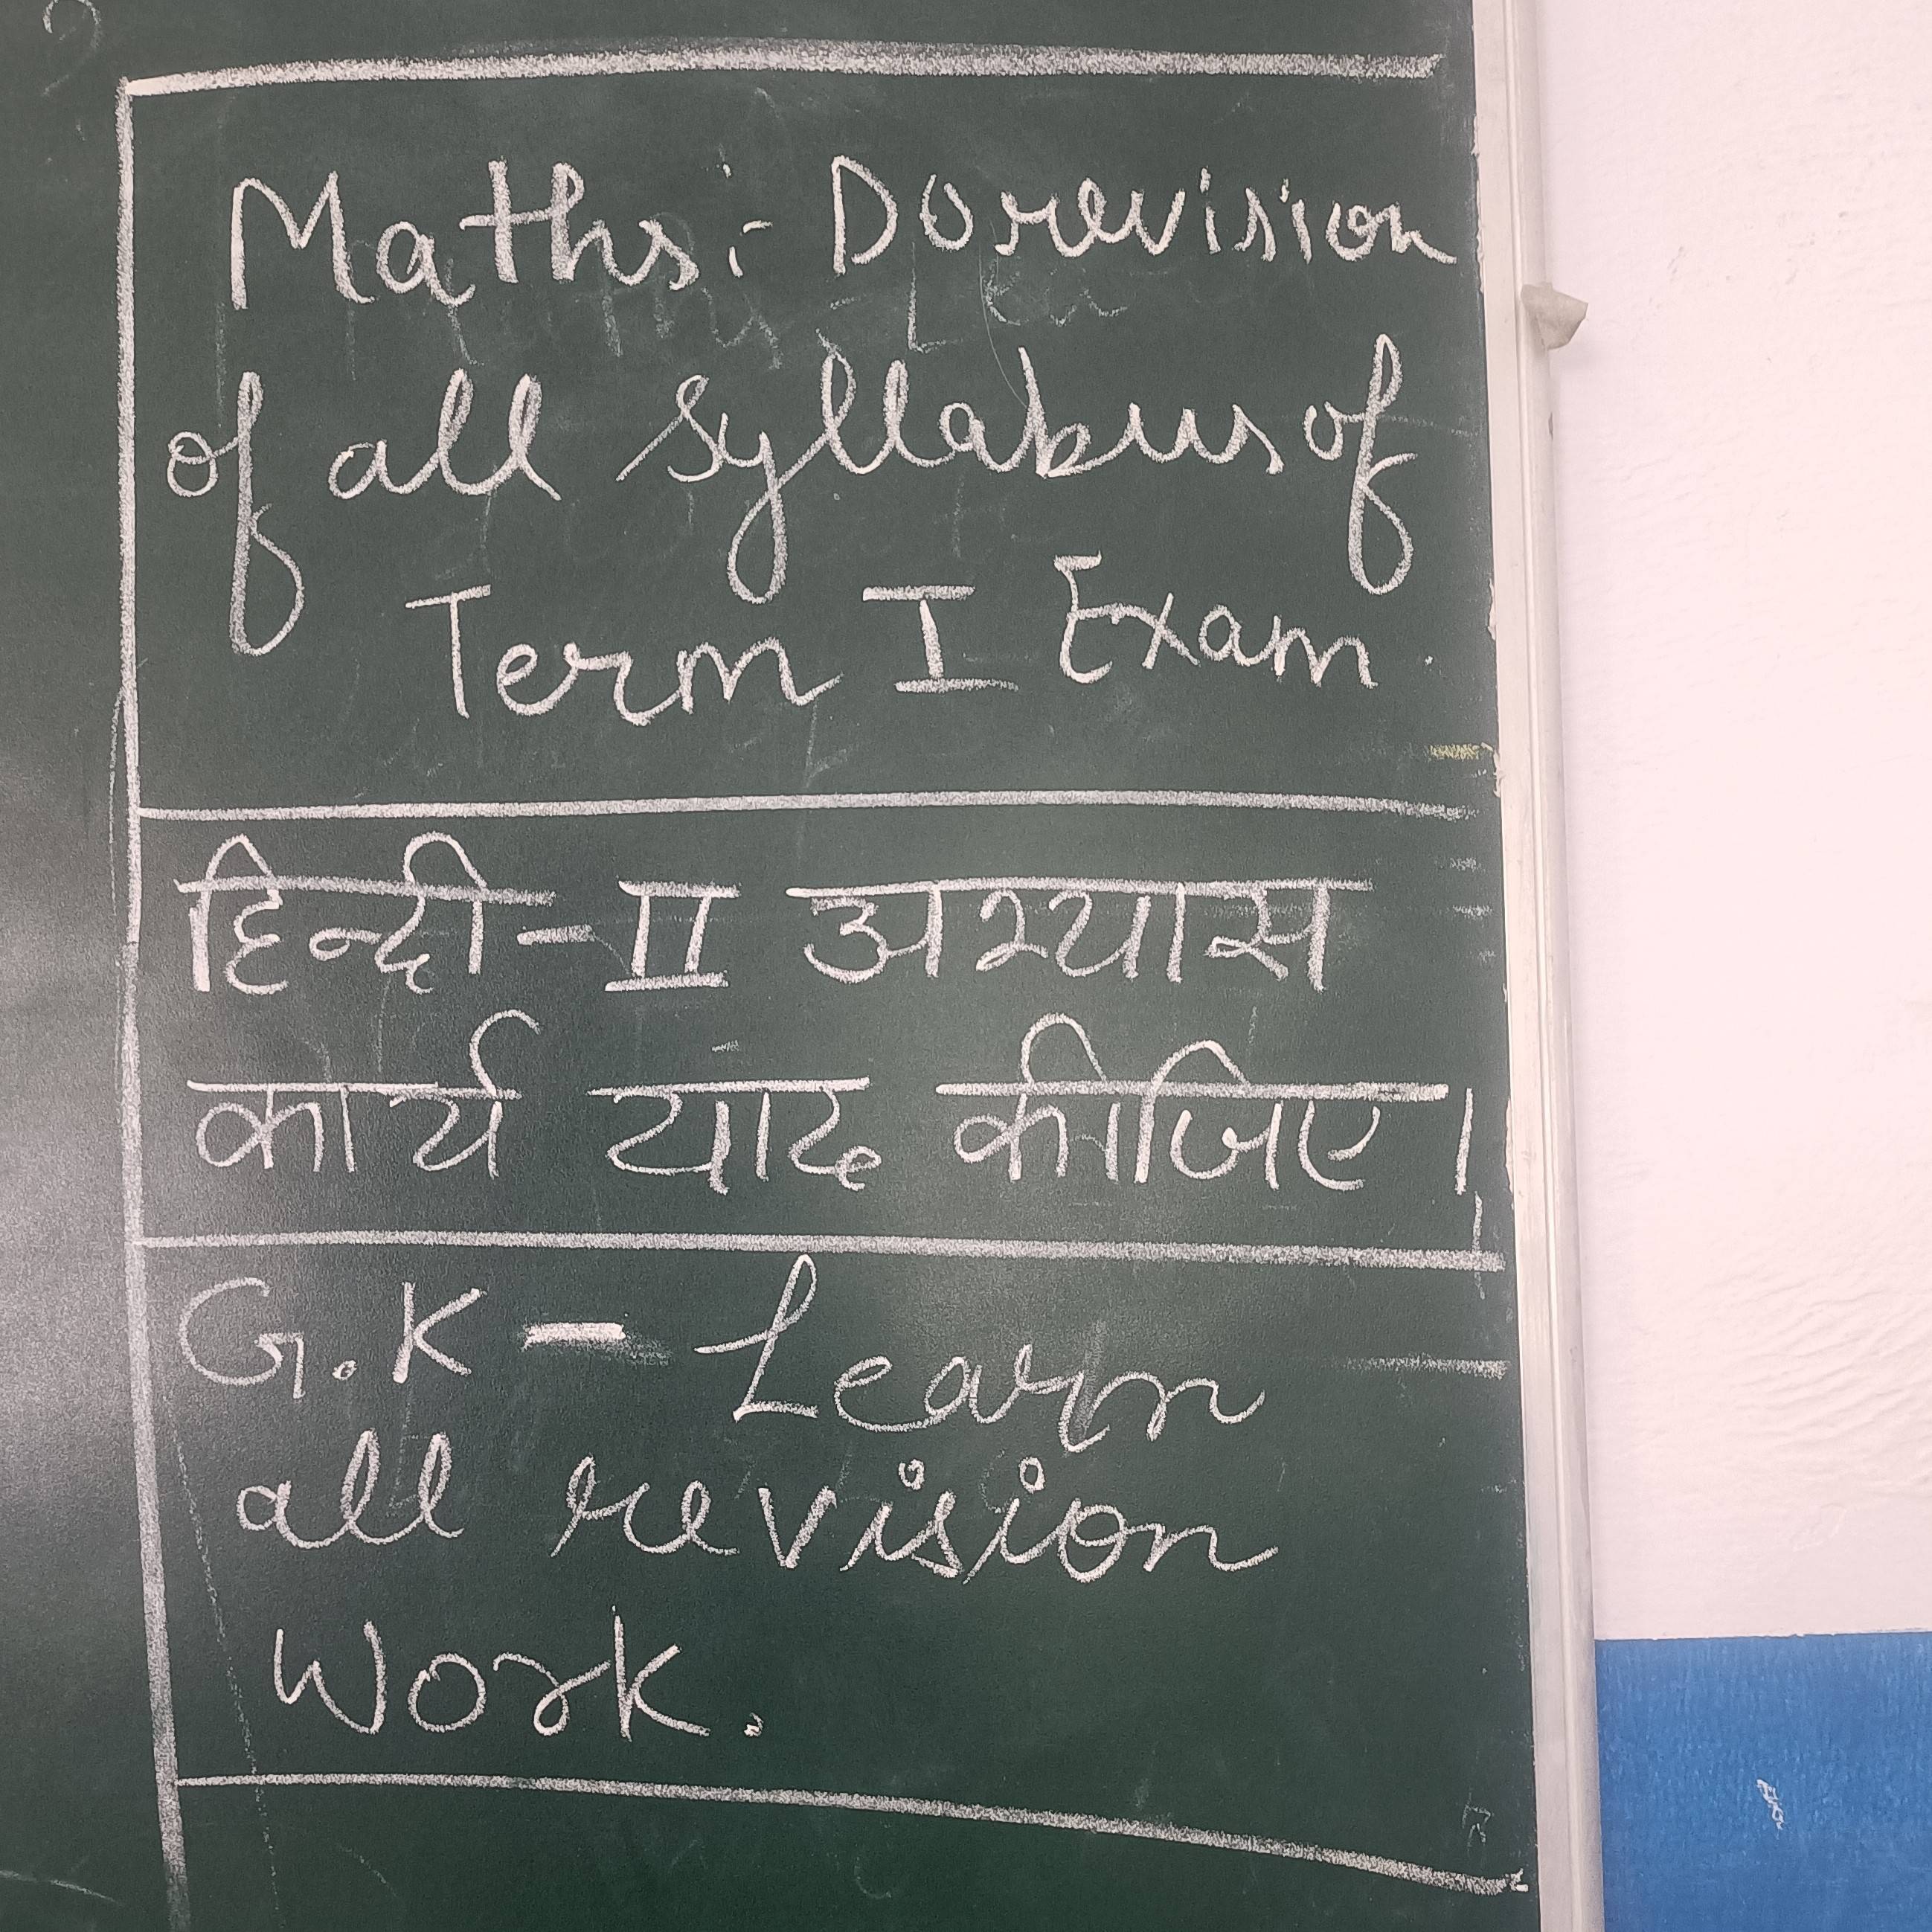 Maths:- Do revision
of all syllabus of
Term I Exam.
हिन्दी-II अभ्यास
कार्य याद कीजिए।
G.K - Learn
all revision
Work.